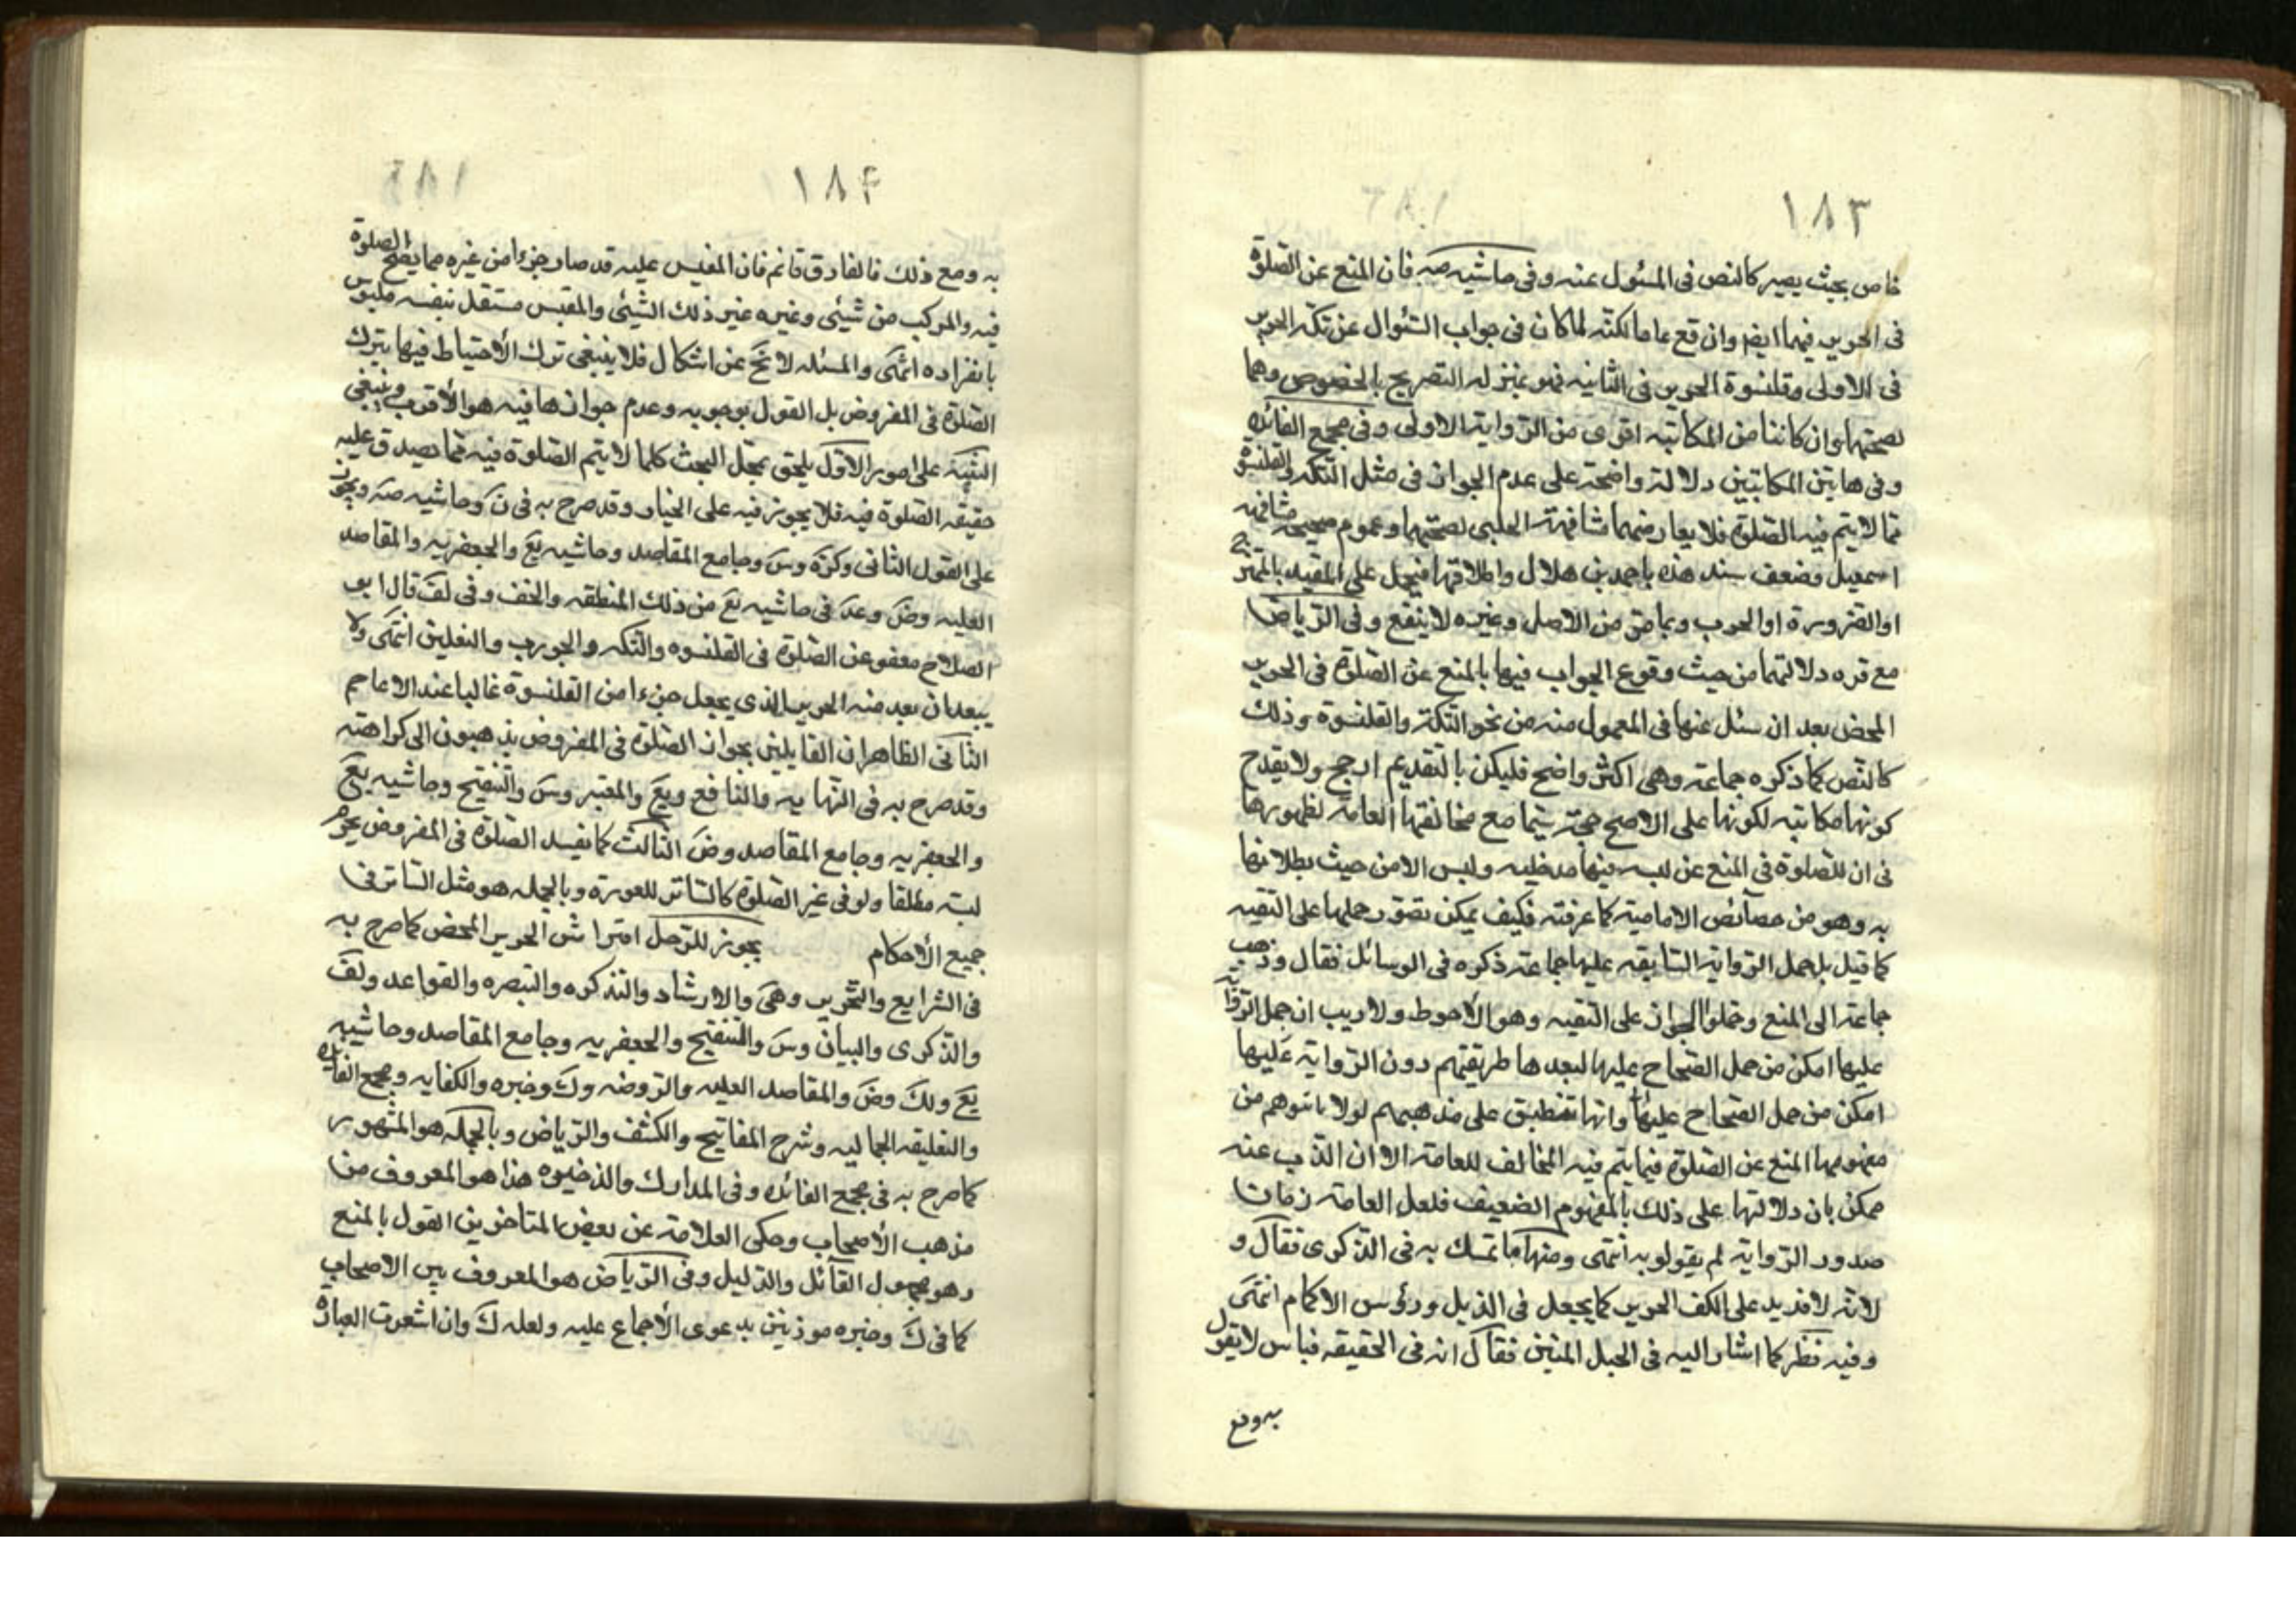 ١٨٣
خاص بحيث يصير كالنص فى المسئول عنه وفى حاشيه صه فان المنع عن الصلوة
فى الحرير فيهما ايضا وان وقع عاما لكنه لما كان فى جواب السئوال عن تكه الحرير
فى الاولى وقلنسوة الحرير فى الثانيه فهو بمنزله التصريح بالخصوص وهما
لصحتها وان كانتا من المكاتبه اقوى من الرواية الاولى وفى مجمع الفائده
وفى هاتين المكاتبتين دلالة واضحة على عدم الجواز فى مثل التكه والقلنسوة
مما لا يتم فيه الصلوة فلا يعارضهما مشافهة الحلبى لصحتهما وعموم صحيحة مشافهه
اسمعيل وضعف سند هذه باحمد بن هلال واطلاقها فيحمل على المقيد بالممتزج
او الضرورة او الحرب وبما مر من الاصل وغيره لا ينفع وفى الرياض
مع قره دلالتهما من حيث وقوع الجواب فيها بالمنع عن الصلوة فى الحرير
المحض بعد ان سئل عنها فى المعمول منه من نحو التكة والقلنسوة وذلك
كالنص كما ذكره جماعة وهى اكثر واضح فليكن بالتقديم ارجح ولا يقدح
كونها مكاتبه لكونها على الاصح حجة سيما مع مخالفتها العامة لظهورها
فى ان للصلوة فى المنع عن لبسه فيها مدخليه وليس الا من حيث بطلانها
به وهو من خصآئص الامامية كما عرفته فكيف يمكن تصور حملها على التقيه
كما قيل بل حمل الرواية السابقه عليها جماعة ذكره فى الوسائل فقال وذهب
جماعة الى المنع وحملوا الجواز على التقيه وهو الأحوط ولا ريب ان حمل الرواية
عليها امكن من حمل الصحاح عليها لبعدها طريقتهم دون الرواية عليها
امكن من حمل الصحاح عليها وانها تنطبق على مذهبهم لولا ما يتوهم من
مفهومها المنع عن الصلوة فيما يتم فيه المخالف للعامة الا ان الذب عنه
ممكن بان دلالتها على ذلك بالمفهوم الضعيف فلعل العامة زمان
صدور الرواية لم يقولو به انتهى ومنها ما تمسك به فى الذكرى فقال و
لانه لا يزيد على الكف الحرير كما يجعل فى الذيل ورؤس الاكمام انتهى
وفيه نظر كما اشار اليه فى الحبل المتين فقال انه فى الحقيقه قياس لا يقول
به ومع
١٨۴
به ومع ذلك فالفارق قائم فان المقيس عليه قد صار جزءا من غيره مما يصح الصلوة
فيه والمركب من شيئى وغيره غير ذلك الشيئى والمقيس مستقل بنفسه ملبوس
بانفراده انتهى والمسئله لا تخ عن اشكال فلا ينبغى ترك الأحتياط فيها بترك
الصلوة فى المفروض بل القول بوجوبه وعدم جوازها فيه هو الأقرب وينبغى
التنبيه على امور الاول يلحق بمحل البحث كلما لا يتم الصلوة فيه مما يصدق عليه
حقيقه الصلوة فيه فلا يجوز فيه على المختار وقد صرح به فى ن وحاشيه صه ويجوز
على القول الثانى وكره وس وجامع المقاصد وحاشيه يع والجعفريه والمقاصد
العليه وض وعد فى حاشيه يع من ذلك المنطقه والخف وفى لف قال ابو
الصلاح معفو عن الصلوة فى القلنسوه والتكه والجورب والنعلين انتهى ولا
يبعد ان يعد منه الحرير الذى يجعل جزءا من القلنسوة غالبا عند الاعاجم
الثانى الظاهر ان القايلين بجواز الصلوة فى المفروض يذهبون الى كراهته
وقد صرح به فى النهايه والنافع ويع والمعتبر وس والتنقيح وحاشيه يع
والجعفريه وجامع المقاصد وض الثالث كما يفسد الصلوة فى المفروض يحرم
لبسه مطلقا ولو فى غير الصلوة كالساتر للعورة وبالجمله هو مثل الساتر فى
جميع الأحكام يجوز للرجل افتراش الحرير المحض كما صرح به
فى الشرايع والتحرير وهى والارشاد والتذكره والتبصره والقواعد ولف
والذكرى والبيان وس والتنقيح والجعفريه وجامع المقاصد وحاشيه
يع ولك وض والمقاصد العليه والروضه وك وخيره والكفايه ومجمع الفايده
والتعليقه الجماليه وشرح المفاتيح والكشف والرياض وبالجمله هو المشهور
كما صرح به فى مجمع الفائده وفى المدارك والذخيره هذا هو المعروف من
مذهب الأصحاب وحكى العلامة عن بعض المتاخرين القول بالمنع
وهو مجهول القآئل والدليل وفى الرياض هو المعروف بين الاصحاب
كما فى ك وخيره موذنين بدعوى الأجماع عليه ولعله ك وان اشعرت العبارة